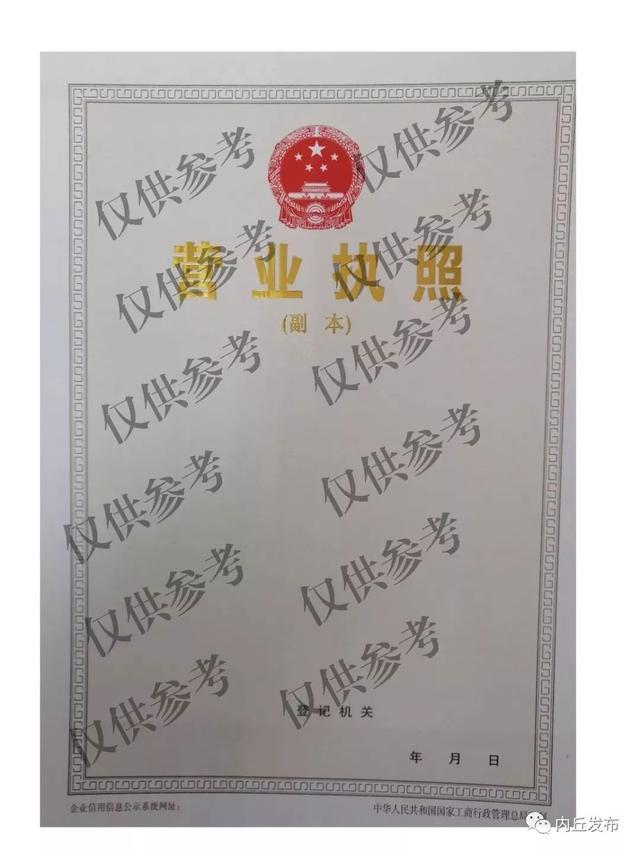 仅供参考
仅供参考
仅供参考
仅供参考
营业执照
(副 本)
仅供参考
仅供参考
仅供参考
仅供参考
仅供参考
仅供参考
仅供参考
仅供参考
登记机关
年 月 日
企业信用信息公示系统网址：
中华人民共和国国家工商行政管理总局
内丘发布